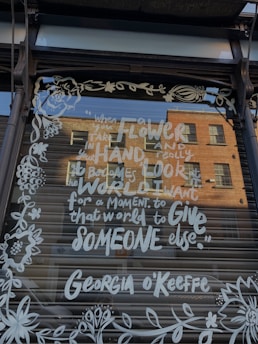 "When
you FLOWER
TAKE IN AND
your HAND really
LOOK
it BECOMES YOUR
WORLD I WANT
for a MOMENT. to
that world to GIVE
SOMEONE else."
GEORGIA O'KEEFFE